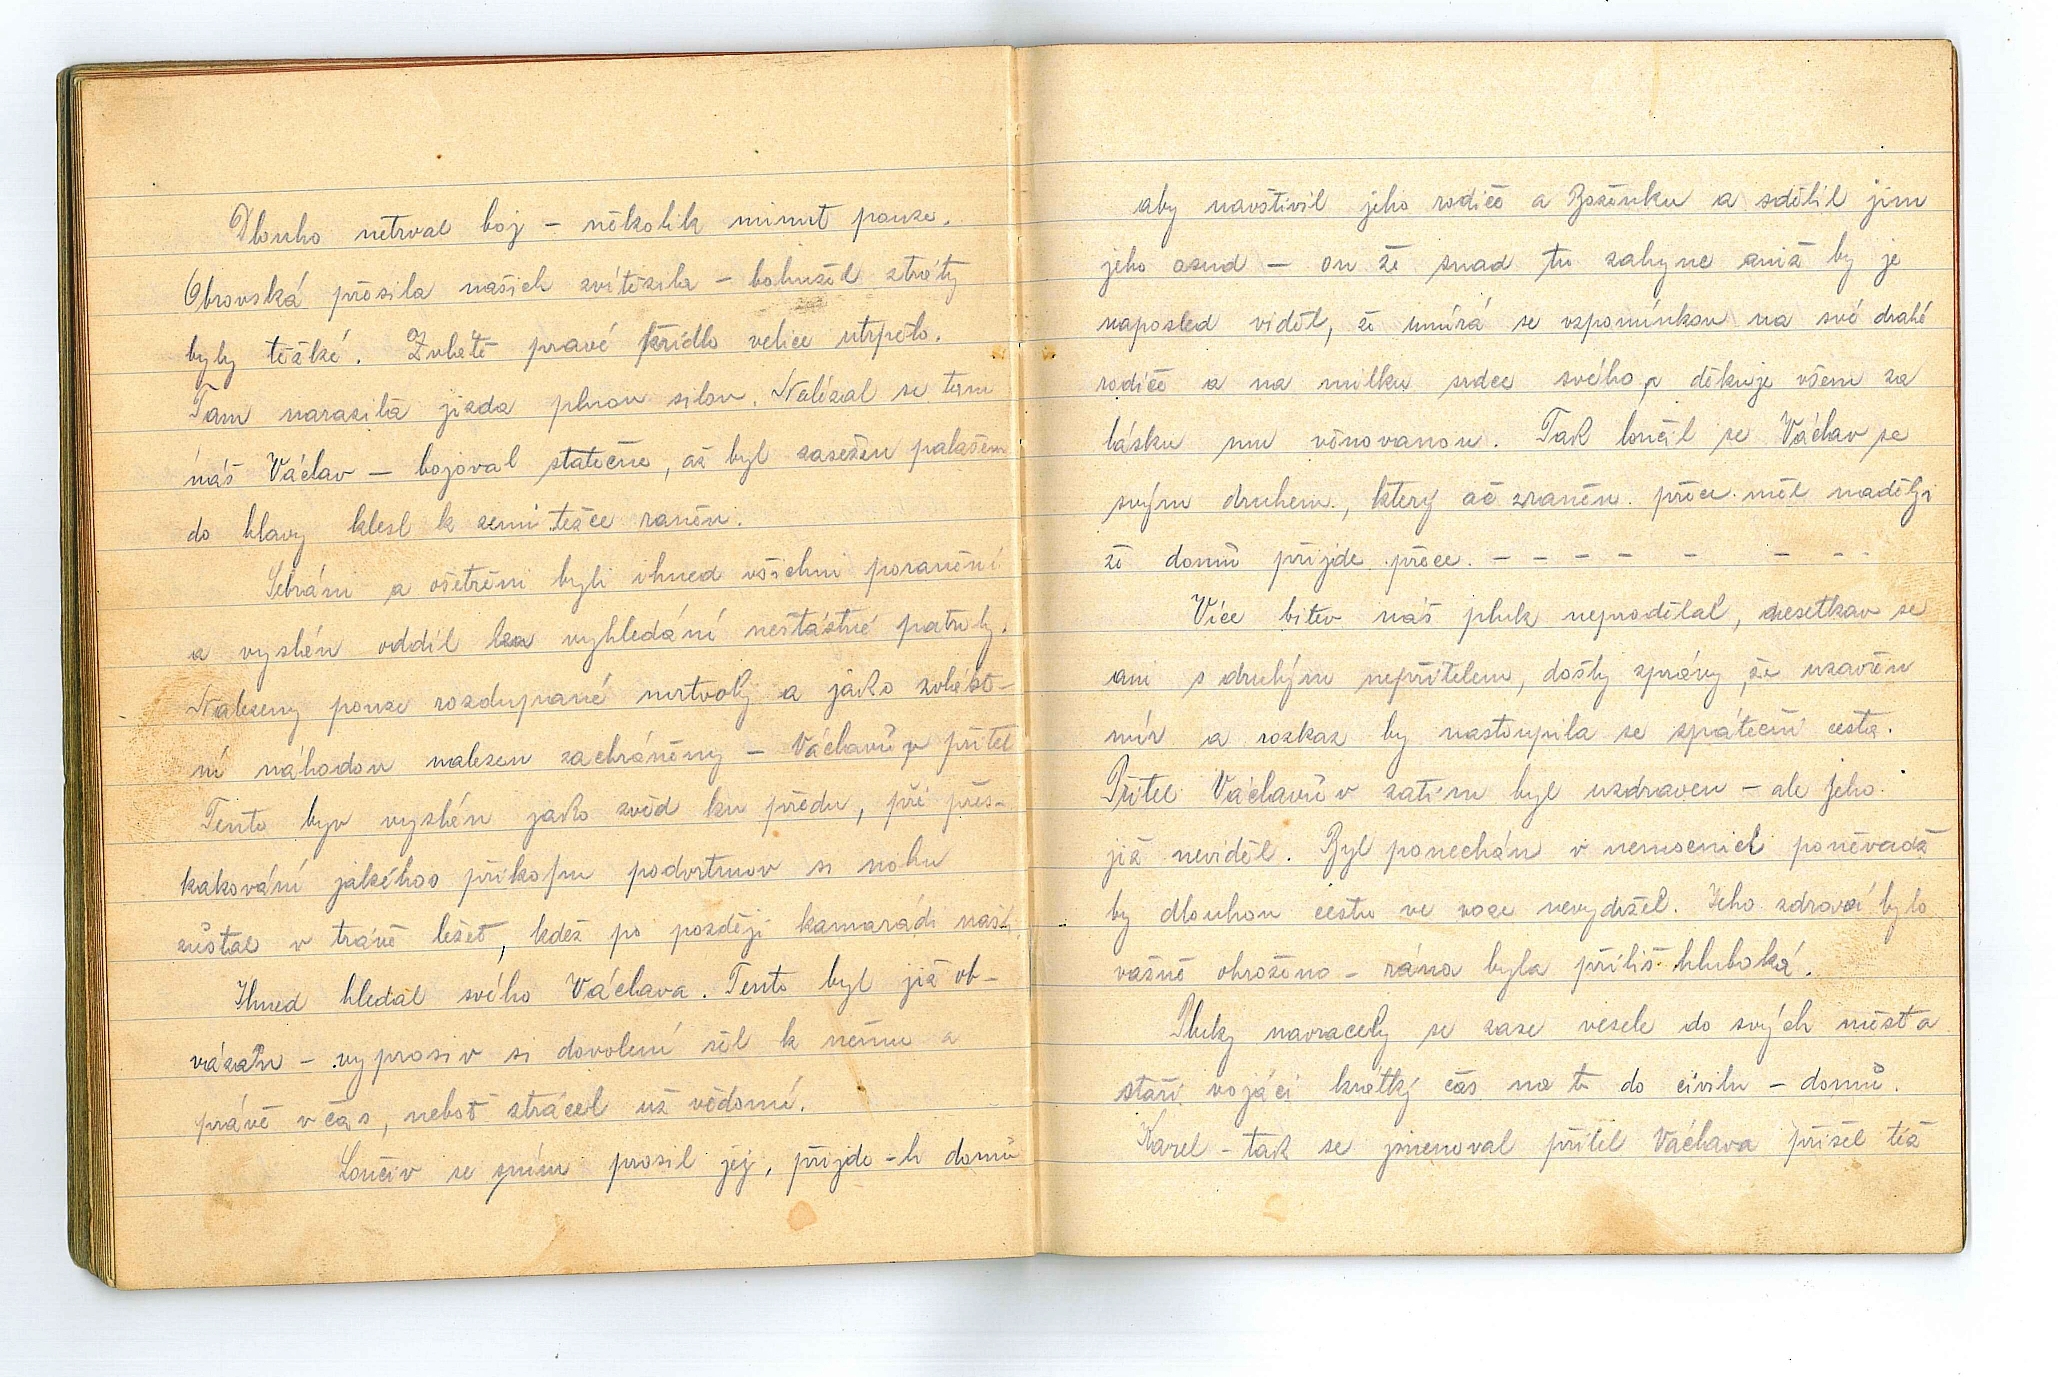 Dlouho netrval boj – několik minut pouze.
Obrovská přesila našich zvítězila – bohužel ztráty
byly těžké. Zvláště pravé křídlo velice utrpělo.
Tam narazila jízda plnou silou. Nalézal se tam
náš Václav – bojoval statečně, až byl zasežen palašem
do hlavy klesl k zemi těžce raněn.
Sebráni a ošetřeni byli ihned všichni poranění
a vyslán oddíl ku vyhledání nešťastné patroly.
Nalezeny pouze rozdupané mrtvoly a jako zvlášt-
ní náhodou nalezen zachráněny – Václavův přítel
Tento byv vyslán jako zvěd ku předu, při přes-
kakování jakéhos příkopu podvrtnuv si nohu
zůstal v trávě ležet, kdež po později kamarádi našli.
Ihned hledal svého Václava. Tento byl již ob-
vázán – vyprosiv si dovolení šel k němu a
právě v čas, neboť ztrácel už vědomí.
Loučiv se s ním prosil jej, přijde-li domů
aby navštívil jeho rodiče a Boženku a sdělil jim
jeho osud – on že snad tu zahyne aniž by je
naposled viděl, že umírá se vzpomínkou na své drahé
rodiče a na milku srdce svého, děkuje všem za
lásku mu věnovanou. Tak loučil se Václav se
svým druhem, který ač zraněn přece měl naději
že domů přijde přece. – – – – – – – –
Více bitev náš pluk neprodělal, nesetkav se
ani s druhým nepřítelem, došly zprávy, že uzavřen
mír a rozkaz by nastoupila se zpáteční cesta.
Přítel Václavův zatím byl uzdraven – ale jeho
již neviděl. Byl ponechán v nemocnici poněvadž
by dlouhou cestu ve voze nevydržel. Jeho zdraví bylo
vážně ohroženo – rána byla příliš hluboká.
Pluky navracely se zase vesele do svých měst a
staří vojáci krátký čas na to do civilu – domů.
Karel – tak se jmenoval přítel Václava přišel též